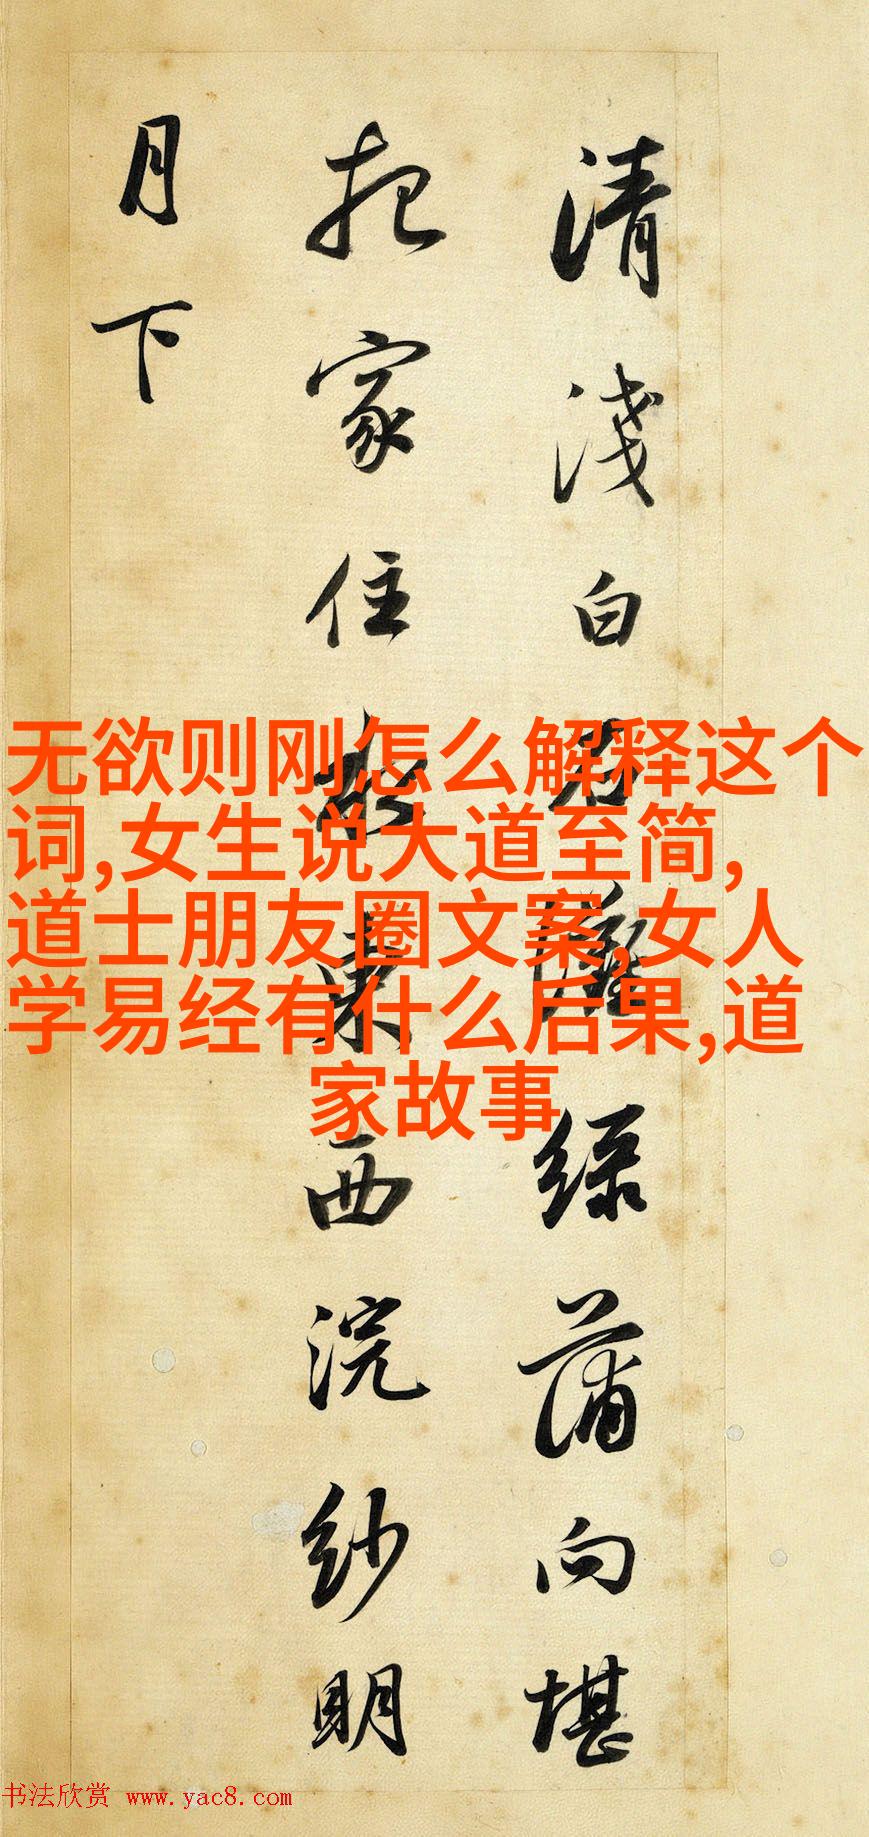 清淺白石灘綠蒲向堪
把家住水東西浣紗明
月下
无欲则刚怎么解释这个
词,女生说大道至简,
道士朋友圈文案,女人
学易经有什么后果,道
家故事
书法欣赏 www.yac8.com